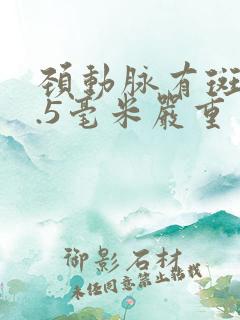 頚動脉有斑
.5毫米嚴重
御影石材
未经同意禁止转载